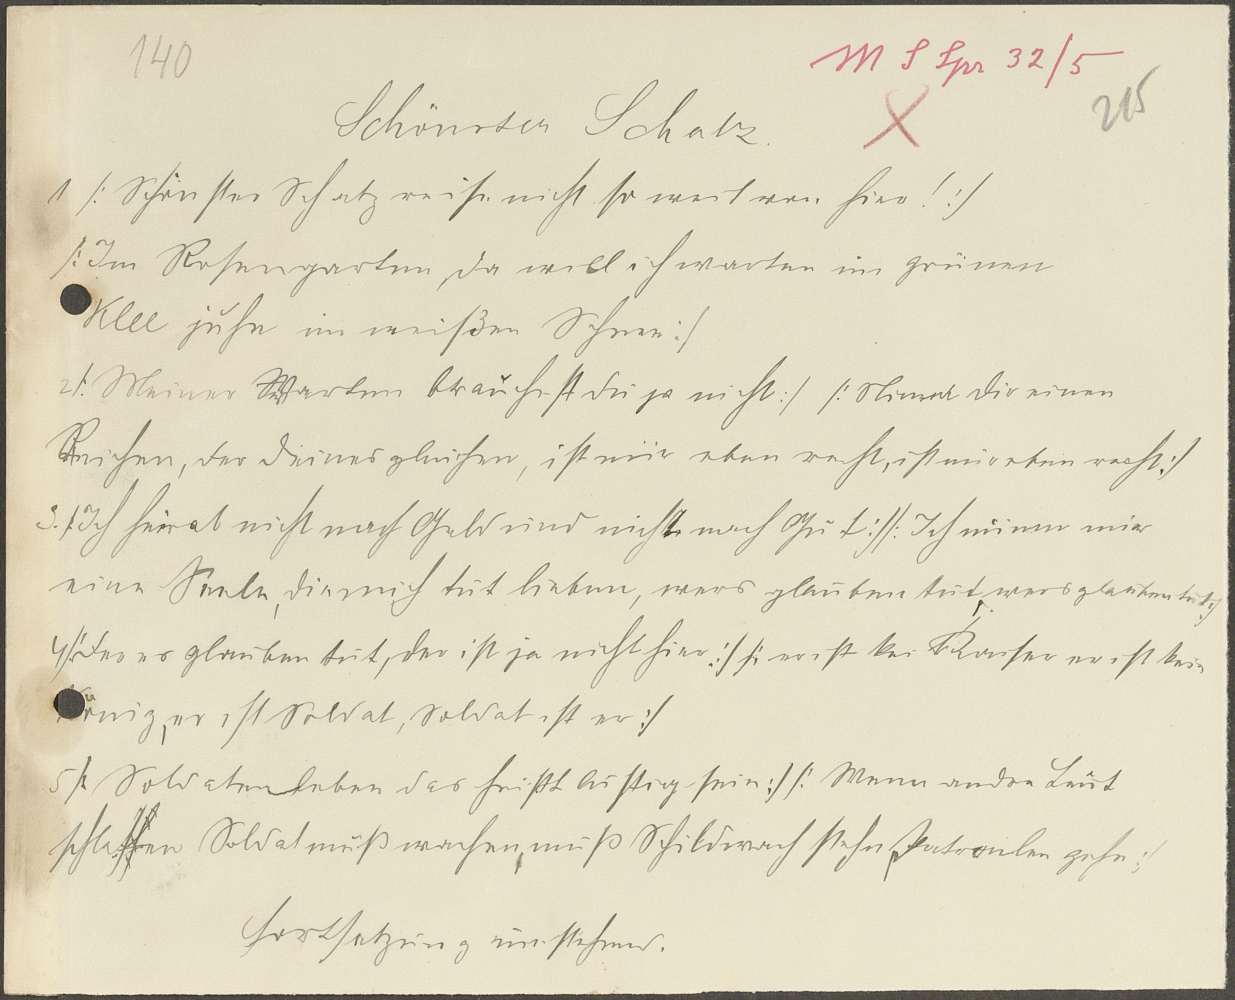 140
M S Spr 32/5
215
Schönster Schatz.
1 /: Schönster Schatz reise nicht so weit von hier! :/
/: Im Rosengarten, da will ich warten im grünen
Klee juhe im weißen Schnee :/
2/: Meiner Warten brauchst du ja nicht :/ /: Nimm dir einen
Reichen, der deinesgleichen, ist mir eben recht, ist mir eben recht :/
3. /: Ich heirat nicht nach Geld und nicht nach Gut :/ /: Ich nimm mir
eine Seele, die mich tut lieben, wers glauben tut, wers glauben tut :/
4/: Der es glauben tut, der ist ja nicht hier :/ /: er ist kei Kaiser er ist kein
König, er ist Soldat, Soldat ist er :/
5/: Soldatenleben das heißt lustig sein :/ /: Wenn andre Leut
schlaffen Soldat muß wachen, muß Schildwach stehn, Patroulen gehn :/
Fortsetzung umstehend.